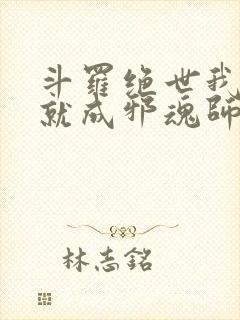 斗羅绝世我
就成邪魂師
林志銘